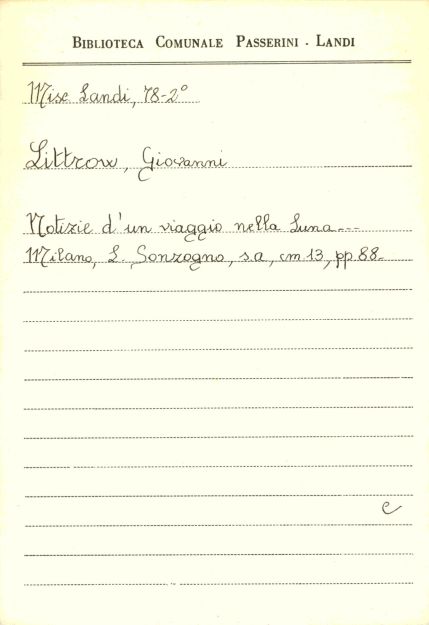 BIBLIOTECA COMUNALE PASSERINI - LANDI
Misc Landi, 78-2°
Littrow, Giovanni
Notizie d'un viaggio nella Luna---
Milano, L. Sonzogno, s.a, cm 13, pp 88.
e